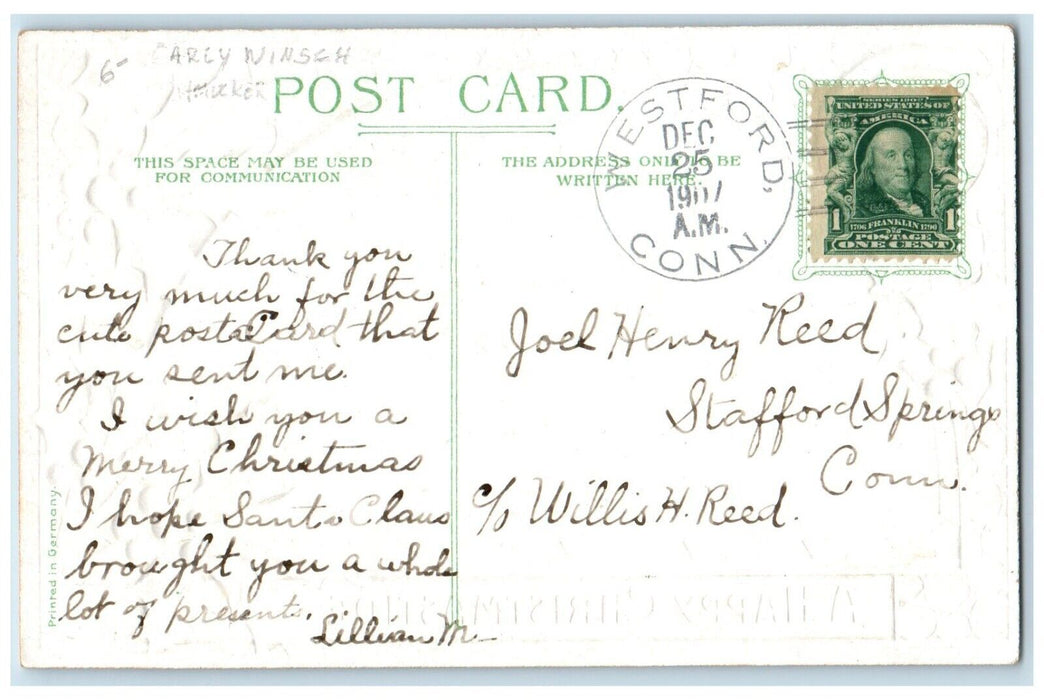 EARLY WINSCH
6-
POST CARD.
THIS SPACE MAY BE USED
FOR COMMUNICATION
THE ADDRESS ONLY TO BE
WRITTEN HERE.
WESTFORD,
DEC
25
1907
A.M.
CONN.
SERIES 1902
UNITED STATES OF
AMERICA
1 1
1706 FRANKLIN 1790
POSTAGE
ONE CENT
Thank you
very much for the
cute postal Card that
you sent me.
I wish you a
Merry Christmas
I hope Santa Claus
brought you a whole
lot of presents.
Lillian M—
Joel Henry Reed
Stafford Springs
Conn.
c/o Willis H. Reed.
Printed in Germany.
A HAPPY CHRISTMASTIDE